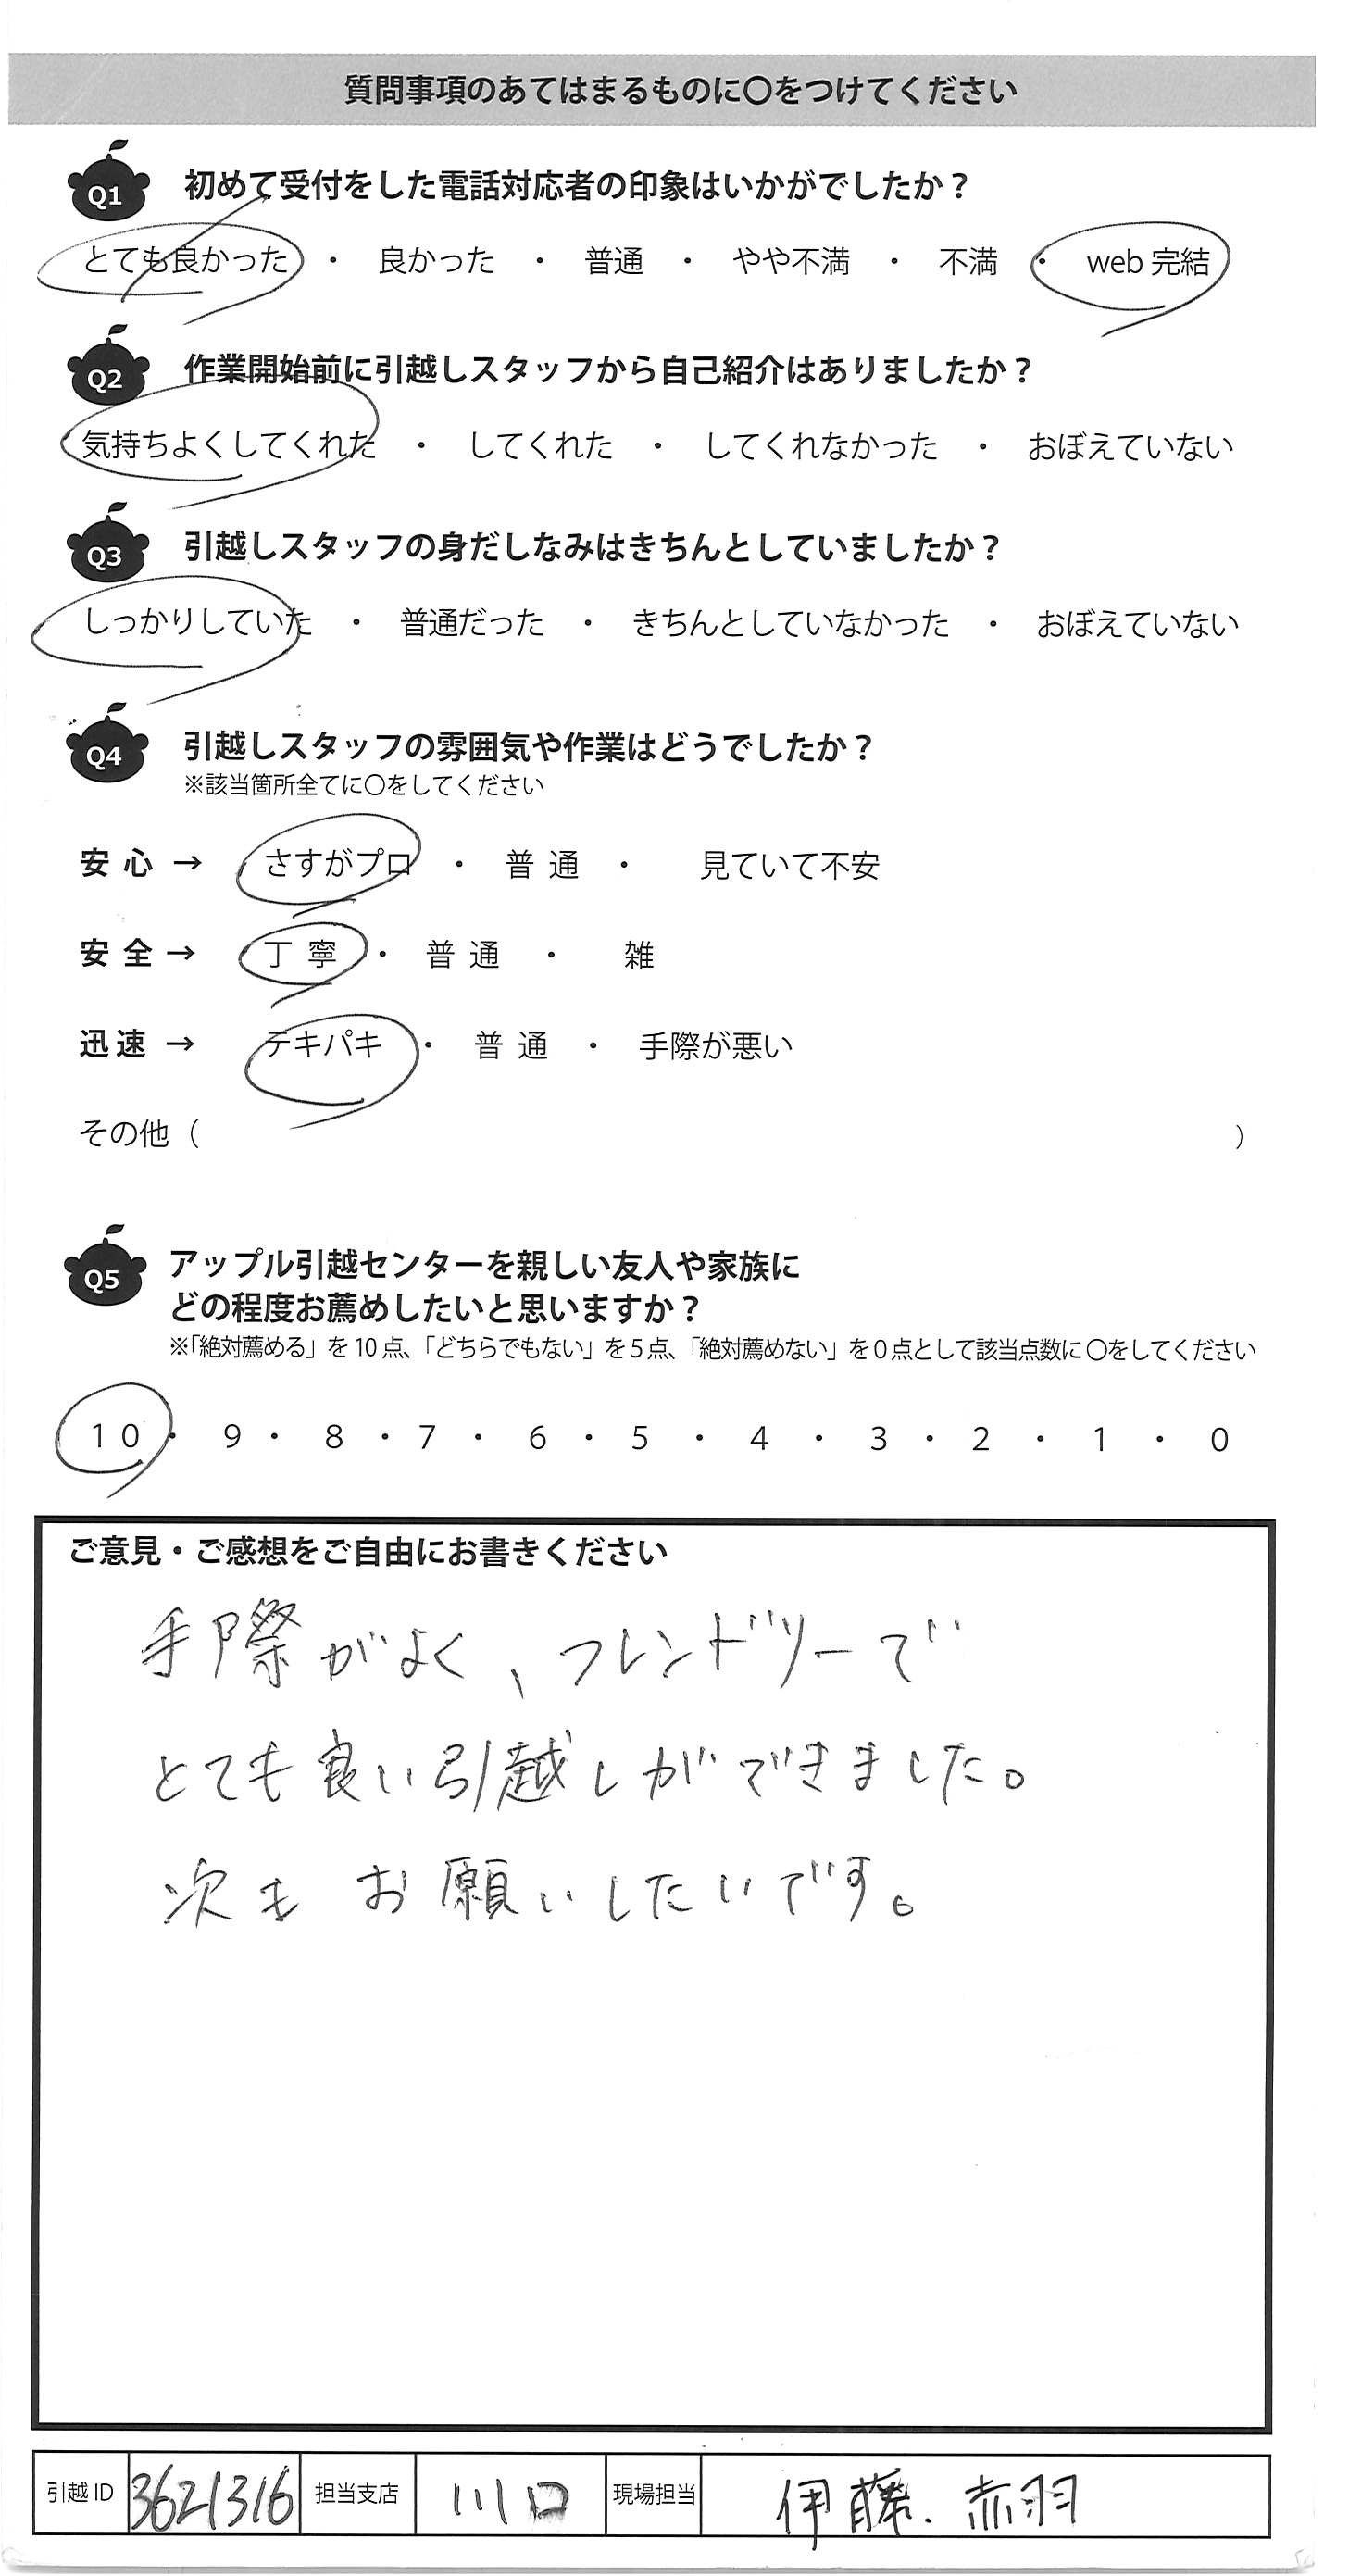 質問事項のあてはまるものに〇をつけてください
Q1 初めて受付をした電話対応者の印象はいかがでしたか？
とても良かった ・ 良かった ・ 普通 ・ やや不満 ・ 不満 ・ web 完結
Q2 作業開始前に引越しスタッフから自己紹介はありましたか？
気持ちよくしてくれた ・ してくれた ・ してくれなかった ・ おぼえていない
Q3 引越しスタッフの身だしなみはきちんとしていましたか？
しっかりしていた ・ 普通だった ・ きちんとしていなかった ・ おぼえていない
Q4 引越しスタッフの雰囲気や作業はどうでしたか？
※該当箇所全てに〇をしてください
安心 → さすがプロ ・ 普通 ・ 見ていて不安
安全 → 丁寧 ・ 普通 ・ 雑
迅速 → テキパキ ・ 普通 ・ 手際が悪い
その他（ ）
Q5 アップル引越センターを親しい友人や家族に
どの程度お薦めしたいと思いますか？
※「絶対薦める」を10点、「どちらでもない」を5点、「絶対薦めない」を0点として該当点数に〇をしてください
10 ・ 9 ・ 8 ・ 7 ・ 6 ・ 5 ・ 4 ・ 3 ・ 2 ・ 1 ・ 0
ご意見・ご感想をご自由にお書きください
手際がよく、フレンドリーで
とても良い引越しができました。
次もお願いしたいです。
引越ID 3621316 担当支店 川口 現場担当 伊藤、赤羽